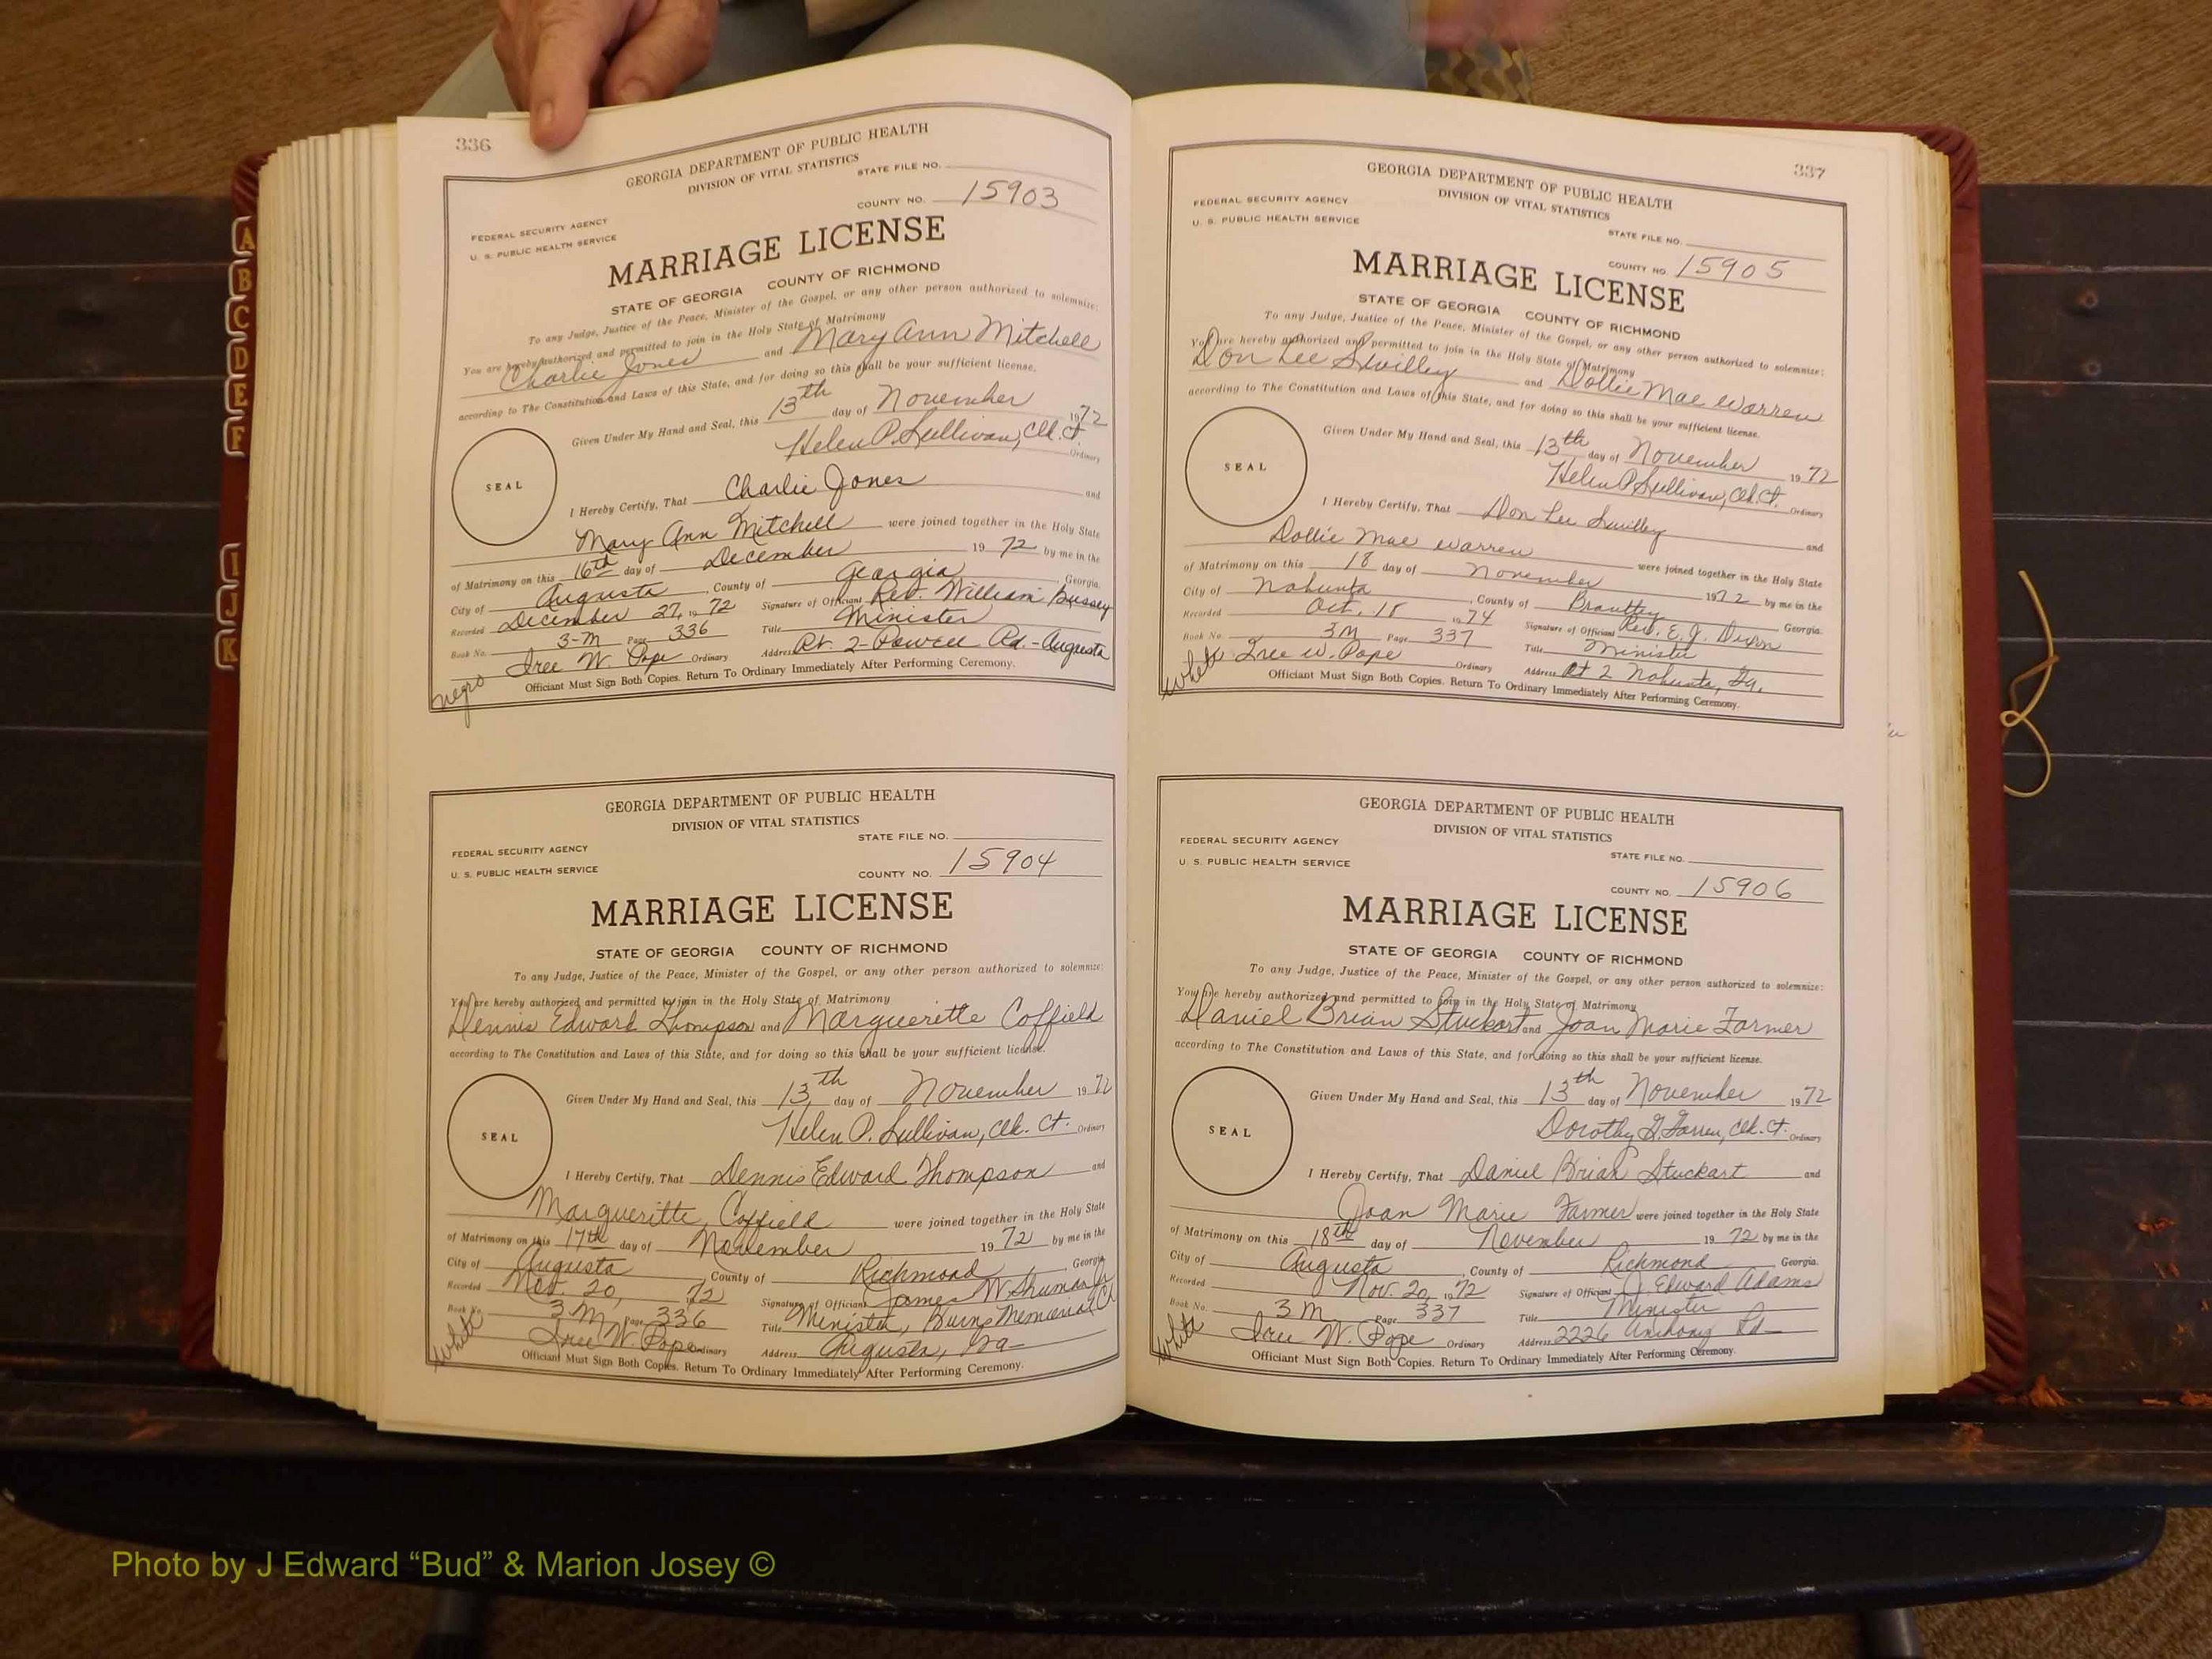 336
GEORGIA DEPARTMENT OF PUBLIC HEALTH
DIVISION OF VITAL STATISTICS
STATE FILE NO.
COUNTY NO. 15903
FEDERAL SECURITY AGENCY
U. S. PUBLIC HEALTH SERVICE
MARRIAGE LICENSE
STATE OF GEORGIA COUNTY OF RICHMOND
To any Judge, Justice of the Peace, Minister of the Gospel, or any other person authorized to solemnize:
You are hereby authorized and permitted to join in the Holy State of Matrimony
Charlie Jones and Mary Ann Mitchell
according to The Constitution and Laws of this State, and for doing so this shall be your sufficient license.
Given Under My Hand and Seal, this 13th day of November 1972
Helen P. Sullivan, Clk. Ct.
Ordinary
SEAL
I Hereby Certify, That Charlie Jones and
Mary Ann Mitchell were joined together in the Holy State
of Matrimony on this 16th day of December 19 72 by me in the
City of Augusta, County of Georgia, Georgia.
Recorded December 27, 19 72 Signature of Officiant Rev. William Bussey
Book No. 3-M Page 336 Title Minister
Iree W. Pope Ordinary Address Rt. 2-Powell Rd.-Augusta
Officiant Must Sign Both Copies. Return To Ordinary Immediately After Performing Ceremony.
negro
GEORGIA DEPARTMENT OF PUBLIC HEALTH
DIVISION OF VITAL STATISTICS
STATE FILE NO.
FEDERAL SECURITY AGENCY
U. S. PUBLIC HEALTH SERVICE
COUNTY NO. 15904
MARRIAGE LICENSE
STATE OF GEORGIA COUNTY OF RICHMOND
To any Judge, Justice of the Peace, Minister of the Gospel, or any other person authorized to solemnize:
You are hereby authorized and permitted to join in the Holy State of Matrimony
Dennis Edward Thompson and Marguerette Coffield
according to The Constitution and Laws of this State, and for doing so this shall be your sufficient license.
Given Under My Hand and Seal, this 13th day of November 1972
Helen P. Sullivan, Clk. Ct. Ordinary
SEAL
I Hereby Certify, That Dennis Edward Thompson and
Margueritte Coffield were joined together in the Holy State
of Matrimony on this 17th day of November 19 72 by me in the
City of Augusta, County of Richmond, Georgia
Recorded Nov. 20, 72 Signature of Officiant James W. Shuman Jr
Book No. 3 M Page 336 Title Minister, Burns Memorial Ch
Iree W. Pope Ordinary Address Augusta, Ga
Officiant Must Sign Both Copies. Return To Ordinary Immediately After Performing Ceremony.
white
337
GEORGIA DEPARTMENT OF PUBLIC HEALTH
DIVISION OF VITAL STATISTICS
FEDERAL SECURITY AGENCY
U. S. PUBLIC HEALTH SERVICE
STATE FILE NO.
COUNTY NO. 15905
MARRIAGE LICENSE
STATE OF GEORGIA COUNTY OF RICHMOND
To any Judge, Justice of the Peace, Minister of the Gospel, or any other person authorized to solemnize:
You are hereby authorized and permitted to join in the Holy State of Matrimony
Don Lee Swilley and Dollie Mae Warren
according to The Constitution and Laws of this State, and for doing so this shall be your sufficient license.
Given Under My Hand and Seal, this 13th day of November 1972
Helen P. Sullivan, Clk. Ct. Ordinary
SEAL
I Hereby Certify, That Don Lee Swilley and
Dollie Mae Warren were joined together in the Holy State
of Matrimony on this 18 day of November 1972 by me in the
City of Nahunta, County of Brantley Georgia.
Recorded Oct. 18 1974 Signature of Officiant Rev. E. J. Dixon
Book No. 3M Page 337 Title Minister
Iree W. Pope Ordinary Address Rt 2 Nahunta, Ga.
Officiant Must Sign Both Copies. Return To Ordinary Immediately After Performing Ceremony.
white
GEORGIA DEPARTMENT OF PUBLIC HEALTH
DIVISION OF VITAL STATISTICS
FEDERAL SECURITY AGENCY
U. S. PUBLIC HEALTH SERVICE
STATE FILE NO.
COUNTY NO. 15906
MARRIAGE LICENSE
STATE OF GEORGIA COUNTY OF RICHMOND
To any Judge, Justice of the Peace, Minister of the Gospel, or any other person authorized to solemnize:
You are hereby authorized and permitted to join in the Holy State of Matrimony
Daniel Brian Stuckart and Joan Marie Farmer
according to The Constitution and Laws of this State, and for doing so this shall be your sufficient license.
Given Under My Hand and Seal, this 13th day of November 1972
Dorothy G. Clk. Ct. Ordinary
SEAL
I Hereby Certify, That Daniel Brian Stuckart and
Joan Marie Farmer were joined together in the Holy State
of Matrimony on this 18th day of November 19 72 by me in the
City of Augusta, County of Richmond Georgia.
Recorded Nov. 20, 1972 Signature of Officiant J. Edward Adams
Book No. 3 M Page 337 Title Minister
Iree W. Pope Ordinary Address 2226 Anthony Rd
Officiant Must Sign Both Copies. Return To Ordinary Immediately After Performing Ceremony.
white
A
B
C
D
E
F
I
J
K
Photo by J Edward “Bud” & Marion Josey ©